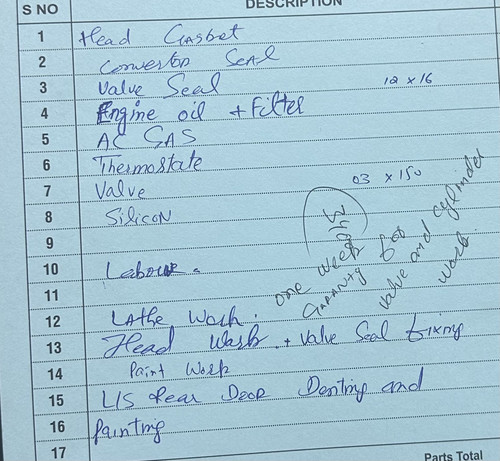 S NO DESCRIPTION
1 Head Gasket
2 Convertor Seal
3 Valve Seal 12 x 16
4 Engine oil + Filter
5 AC GAS
6 Thermostate
7 Valve 03 x 150
8 Silicon
9
10 Labour.
11
12 Lathe Work.
13 Head Work + Valve Seal fixing
14 Paint Work
15 L/S Rear Door Denting and
16 Painting
17
one week
Garanty for
valve and cylinder
work.
Parts Total